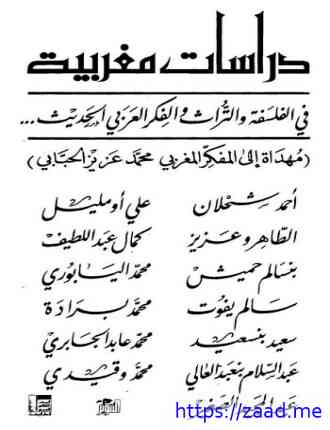 دراسات مغربية
في الفلسفة والتراث والفكر العربي الحديث...
(مهداة إلى المفكر المغربي محمد عزيز الحبابي)
أحمد شحلان علي أومليل
الطاهر وعزيز كمال عبد اللطيف
بنسالم حميش محمد اليابوري
سالم يفوت محمد برادة
سعيد بنسعيد محمد عابد الجابري
عبد السلام بنعبد العالي محمد وقيدي
https://zaad.me